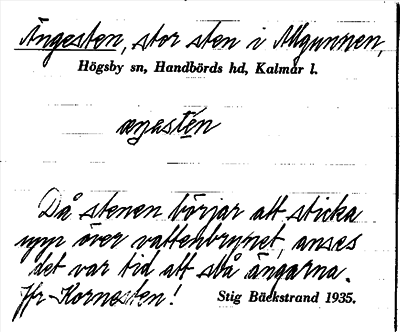 Ängesten, stor sten i Allgunnen,
Högsby sn, Handbörds hd, Kalmar l.
Då stenen börjar att sticka
upp över vattenbrynet, anses
det var tid att slå ängarna.
Jfr Kornesten!
Stig Bäckstrand 1935.